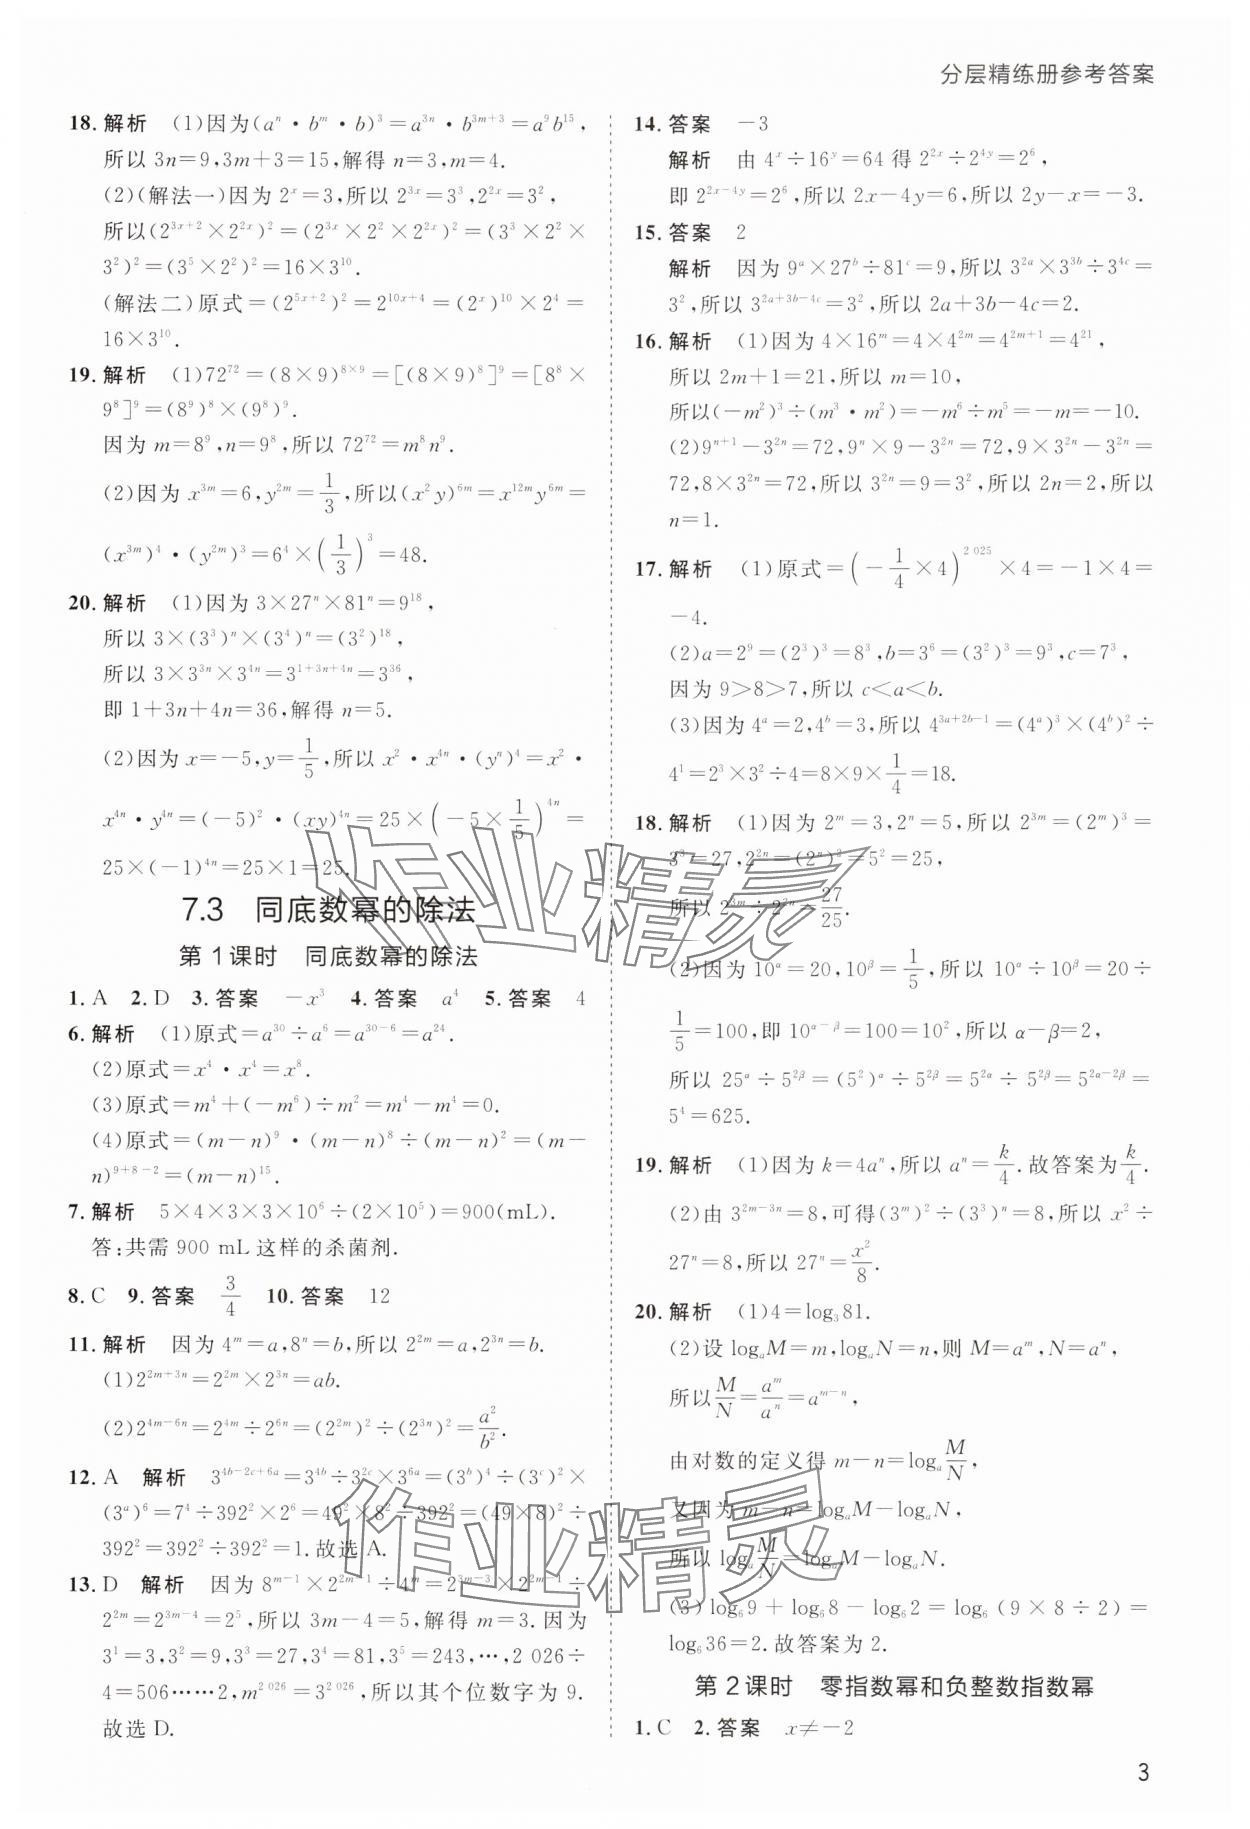 分层精练册参考答案
18. 解析 (1)因为(aⁿ·bᵐ·b)³=a³ⁿ·b³ᵐ⁺³=a⁹b¹⁵,
所以 3n=9,3m+3=15,解得 n=3,m=4.
(2)(解法一)因为 2ˣ=3,所以 2³ˣ=3³,2²ˣ=3²,
所以(2³ˣ⁺²×2²ˣ)²=(2³ˣ×2²×2²ˣ)²=(3³×2²×
3²)²=(3⁵×2²)²=16×3¹⁰.
(解法二)原式=(2⁵ˣ⁺²)²=2¹⁰ˣ⁺⁴=(2ˣ)¹⁰×2⁴=
16×3¹⁰.
19. 解析 (1)72⁷²=(8×9)⁸ˣ⁹=[(8×9)⁸]⁹=[8⁸×
9⁸]⁹=(8⁹)⁸×(9⁸)⁹.
因为 m=8⁹,n=9⁸,所以 72⁷²=m⁸n⁹.
(2)因为 x³ᵐ=6,y²ᵐ=1/3,所以(x²y)⁶ᵐ=x¹²ᵐy⁶ᵐ=
(x³ᵐ)⁴·(y²ᵐ)³=6⁴×(1/3)³=48.
20. 解析 (1)因为 3×27ⁿ×81ⁿ=9¹⁸,
所以 3×(3³)ⁿ×(3⁴)ⁿ=(3²)¹⁸,
所以 3×3³ⁿ×3⁴ⁿ=3¹⁺³ⁿ⁺⁴ⁿ=3³⁶,
即 1+3n+4n=36,解得 n=5.
(2)因为 x=-5,y=1/5,所以 x²·x⁴ⁿ·(yⁿ)⁴=x²·
x⁴ⁿ·y⁴ⁿ=(-5)²·(xy)⁴ⁿ=25×(-5×1/5)⁴ⁿ=
25×(-1)⁴ⁿ=25×1=25.
7.3 同底数幂的除法
第 1 课时 同底数幂的除法
1. A 2. D 3. 答案 -x³ 4. 答案 a⁴ 5. 答案 4
6. 解析 (1)原式=a³⁰÷a⁶=a³⁰⁻⁶=a²⁴.
(2)原式=x⁴·x⁴=x⁸.
(3)原式=m⁴+(-m⁶)÷m²=m⁴-m⁴=0.
(4)原式=(m-n)⁹·(m-n)⁸÷(m-n)²=(m-
n)⁹⁺⁸⁻²=(m-n)¹⁵.
7. 解析 5×4×3×3×10⁶÷(2×10⁵)=900(mL).
答:共需 900 mL 这样的杀菌剂.
8. C 9. 答案 3/4 10. 答案 12
11. 解析 因为 4ᵐ=a,8ⁿ=b,所以 2²ᵐ=a,2³ⁿ=b.
(1)2²ᵐ⁺³ⁿ=2²ᵐ×2³ⁿ=ab.
(2)2⁴ᵐ⁻⁶ⁿ=2⁴ᵐ÷2⁶ⁿ=(2²ᵐ)²÷(2³ⁿ)²=a²/b².
12. A 解析 3^(4b-2c+6a)=3^(4b)÷3^(2c)×3^(6a)=(3^b)⁴÷(3^c)²×
(3^a)⁶=7⁴÷392²×2⁶=49²×8²÷392²=(49×8)²÷
392²=392²÷392²=1.故选 A.
13. D 解析 因为 8ᵐ⁻¹×2²ᵐ⁻¹÷4ᵐ=2³ᵐ⁻³×2²ᵐ⁻¹÷
2²ᵐ=2³ᵐ⁻⁴=2⁵,所以 3m-4=5,解得 m=3.因为
3¹=3,3²=9,3³=27,3⁴=81,3⁵=243,…,2 026÷
4=506……2,m^(2 026)=3^(2 026),所以其个位数字为 9.
故选 D.
14. 答案 -3
解析 由 4ˣ÷16ʸ=64 得 2²ˣ÷2⁴ʸ=2⁶,
即 2²ˣ⁻⁴ʸ=2⁶,所以 2x-4y=6,所以 2y-x=-3.
15. 答案 2
解析 因为 9^a×27^b÷81^c=9,所以 3^(2a)×3^(3b)÷3^(4c)=
3²,所以 3^(2a+3b-4c)=3²,所以 2a+3b-4c=2.
16. 解析 (1)因为 4×16ᵐ=4×4²ᵐ=4²ᵐ⁺¹=4²¹,
所以 2m+1=21,所以 m=10,
所以(-m²)³÷(m³·m²)=-m⁶÷m⁵=-m=-10.
(2)9ⁿ⁺¹-3²ⁿ=72,9ⁿ×9-3²ⁿ=72,9×3²ⁿ-3²ⁿ=
72,8×3²ⁿ=72,所以 3²ⁿ=9=3²,所以 2n=2,所以
n=1.
17. 解析 (1)原式=(-1/4×4)^(2 025)×4=-1×4=
-4.
(2)a=2⁹=(2³)³=8³,b=3⁶=(3²)³=9³,c=7³,
因为 9>8>7,所以 c<a<b.
(3)因为 4^a=2,4^b=3,所以 4^(3a+2b-1)=(4^a)³×(4^b)²÷
4¹=2³×3²÷4=8×9×1/4=18.
18. 解析 (1)因为 2ᵐ=3,2ⁿ=5,所以 2³ᵐ=(2ᵐ)³=
3³=27,2²ⁿ=(2ⁿ)²=5²=25,
所以 2³ᵐ÷2²ⁿ=27/25.
(2)因为 10^α=20,10^β=1/5,所以 10^α÷10^β=20÷
1/5=100,即 10^(α-β)=100=10²,所以 α-β=2,
所以 25^α÷5^(2β)=(5²)^α÷5^(2β)=5^(2α)÷5^(2β)=5^(2α-2β)=
5⁴=625.
19. 解析 (1)因为 k=4aⁿ,所以 aⁿ=k/4.故答案为k/4.
(2)由 3²ᵐ⁻³ⁿ=8,可得(3ᵐ)²÷(3³)ⁿ=8,所以 x²÷
27ⁿ=8,所以 27ⁿ=x²/8.
20. 解析 (1)4=log₃81.
(2)设 logₐM=m,logₐN=n,则 M=aᵐ,N=aⁿ,
所以M/N=aᵐ/aⁿ=aᵐ⁻ⁿ,
由对数的定义得 m-n=logₐM/N,
又因为 m-n=logₐM-logₐN,
所以 logₐM/N=logₐM-logₐN.
(3)log₆9+log₆8-log₆2=log₆(9×8÷2)=
log₆36=2.故答案为 2.
第 2 课时 零指数幂和负整数指数幂
1. C 2. 答案 x≠-2
3
作业精灵
作业精灵